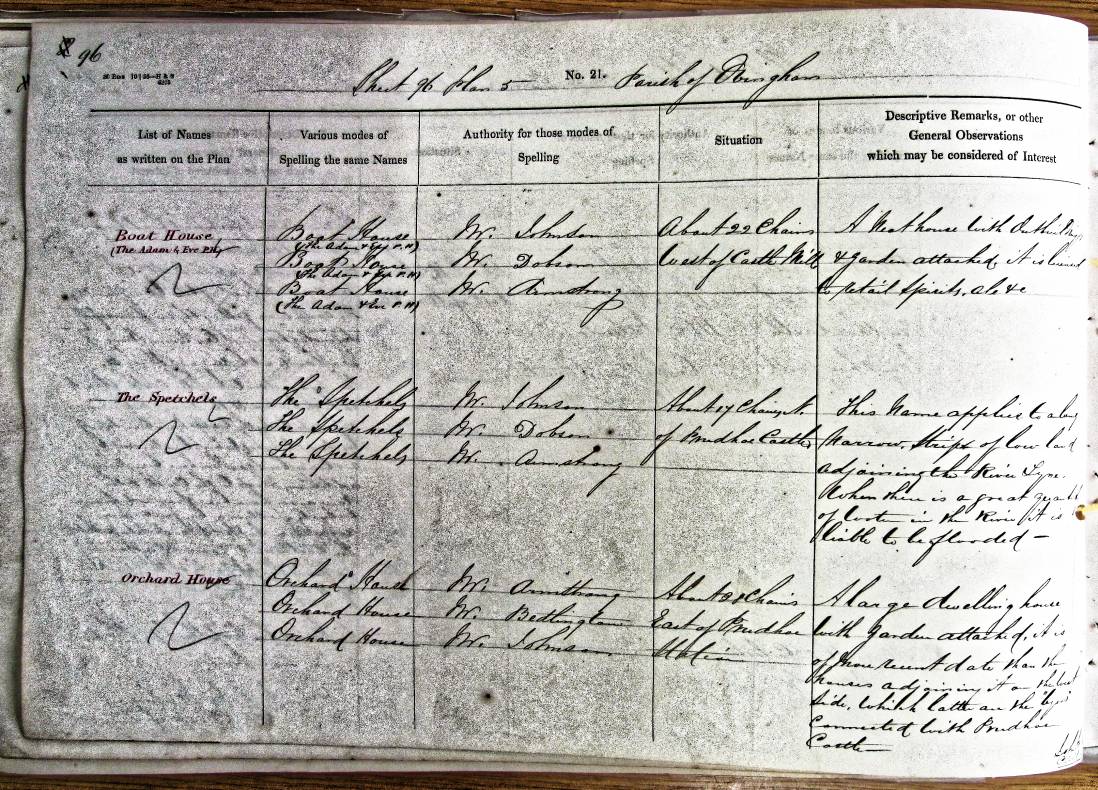 96
Sheet 96 Plan 5 No. 21. Parish of Ovingham
List of Names
as written on the Plan
Various modes of
Spelling the same Names
Authority for those modes of
Spelling
Situation
Descriptive Remarks, or other
General Observations
which may be considered of Interest
Boat House
(The Adam & Eve P.H)
Boat House
(The Adam & Eve P.H)
Boat House
(The Adam & Eve P.H)
Boat House
(The Adam & Eve P.H)
W. Johnson
W. Dobson
W. Armstrong
About 22 Chains
West of Castle Mill
A Neat house with
& Garden attached, It is licensed
to retail Spirits, ale &c
The Spetchels
The Spetchels
The Spetchels
The Spetchels
W. Johnson
W. Dobson
W. Armstrong
About 17 Chains N.
of Prudhoe Castle
This Name applies to a long
Narrow, Stripe of low land
adjoining the River Tyne.
When there is a great
of water in the River it is
liable to be flooded —
Orchard House
Orchard House
Orchard House
Orchard House
W. Armstrong
W. Bedlington
W. Johnson
About Chains
East of Prudhoe
Station
A large dwelling house
with Garden attached, it is
of more recent date than the
houses adjoining it on the West
Side, which latter are the
Connected with Prudhoe
Castle